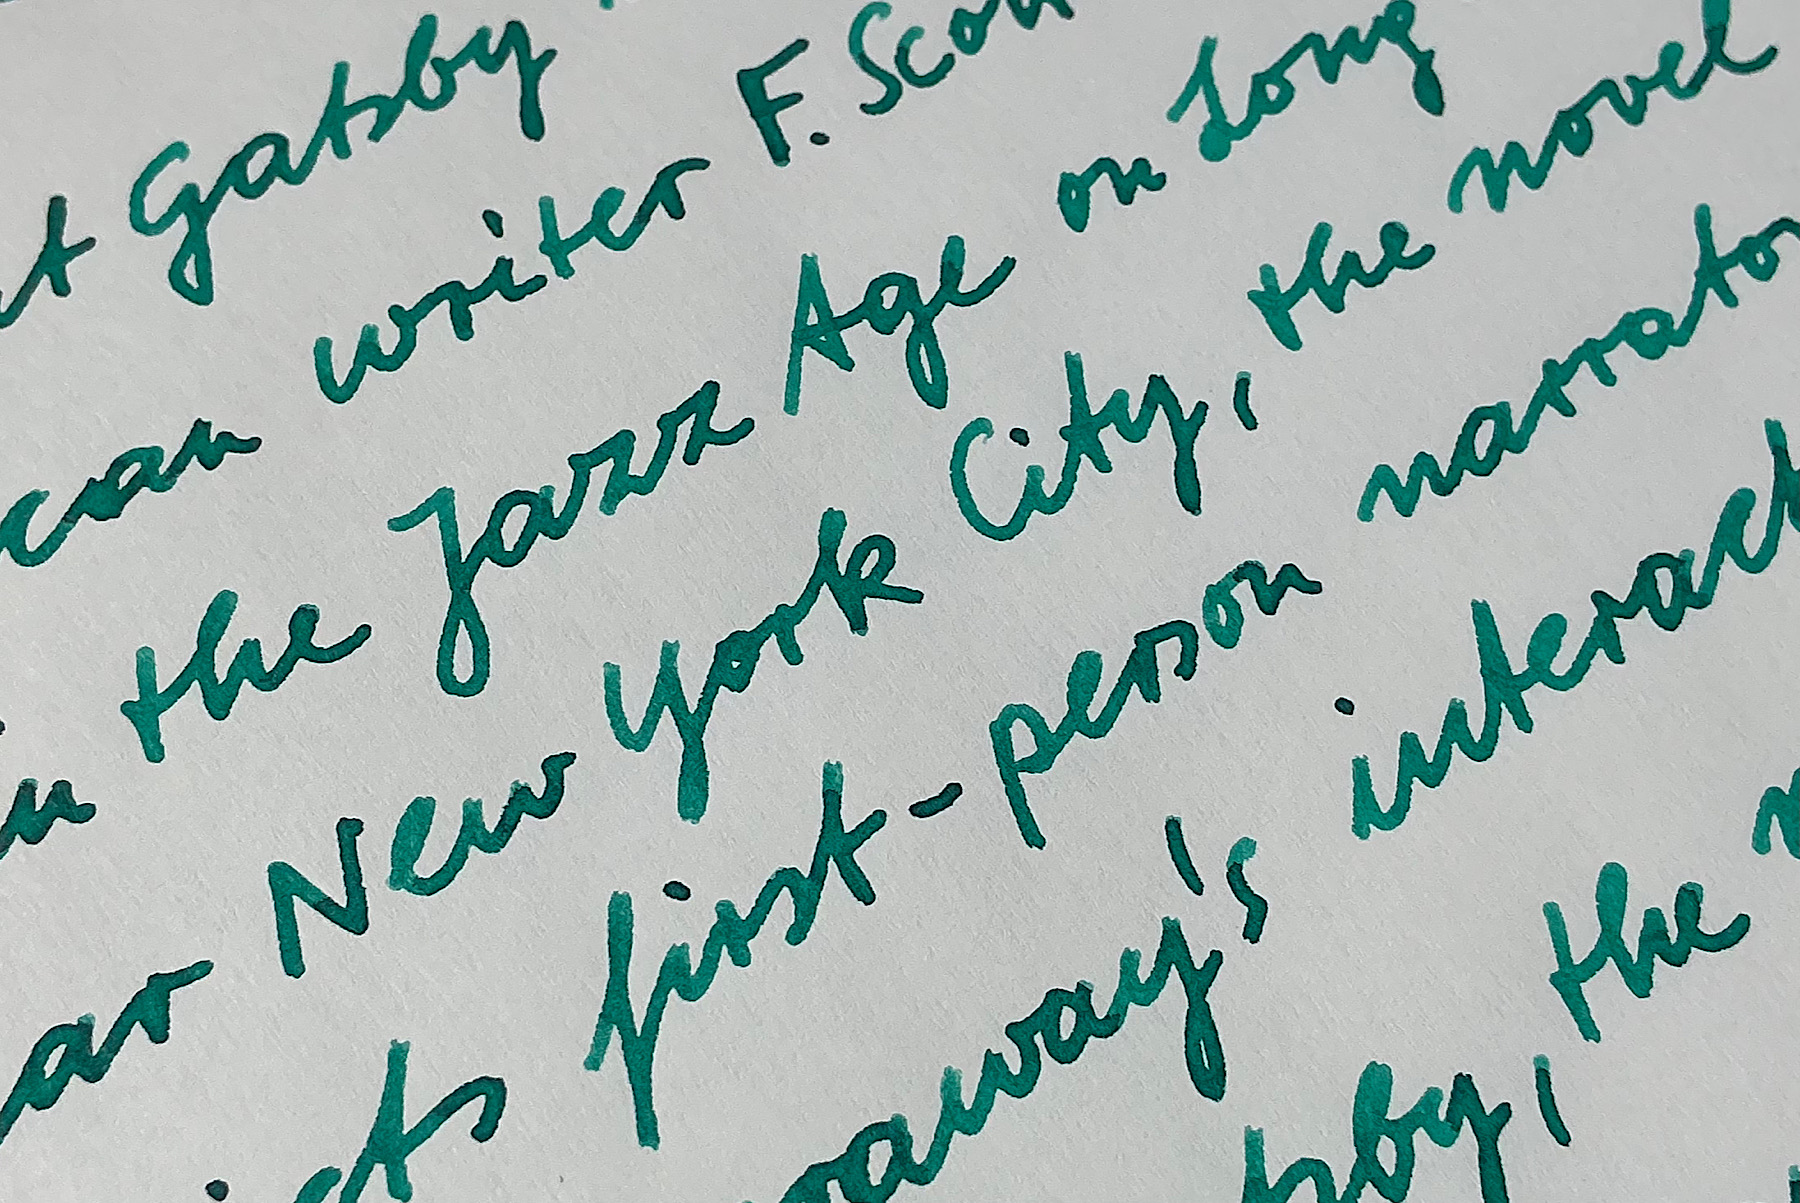 at Gatsby
can writer F. Scott
in the Jazz Age on Long
ar New York City, the novel
icts first-person narrator
raway's interact
sby, the